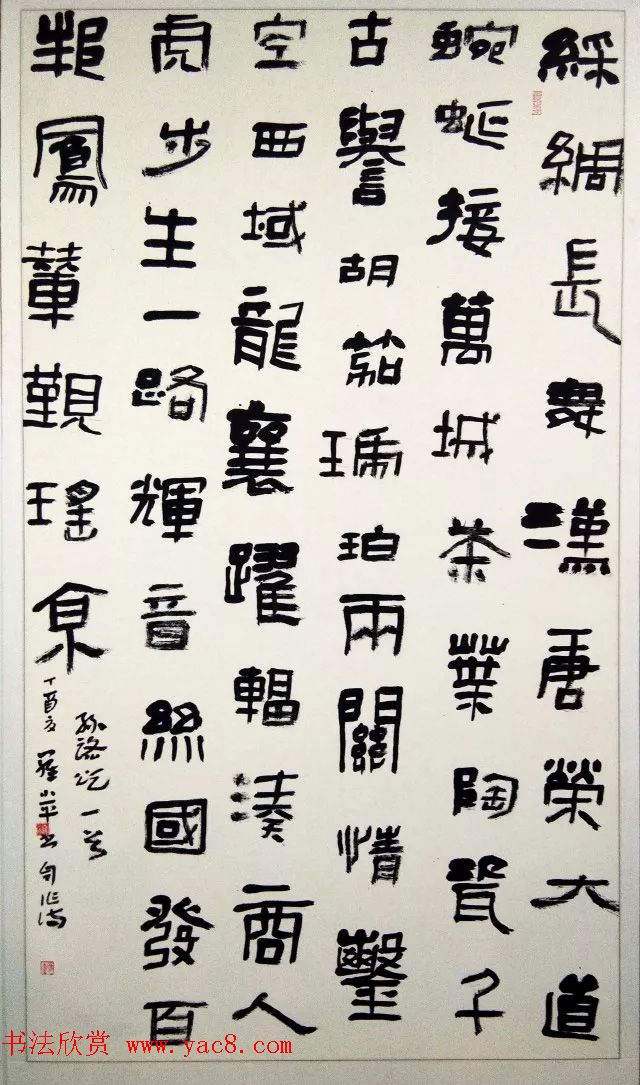 綵綢長舞漢唐榮大道
蜿蜒接萬城茶葉陶瓷千
古譽胡笳瑀珀兩關情鑿
空西域龍襄躍輻湊商人
虎步生一路輝音絲國發百
邦鳳輦觀瑤京
絲路記一首
丁酉夏羅小平書自作詩
书法欣赏 www.yac8.com